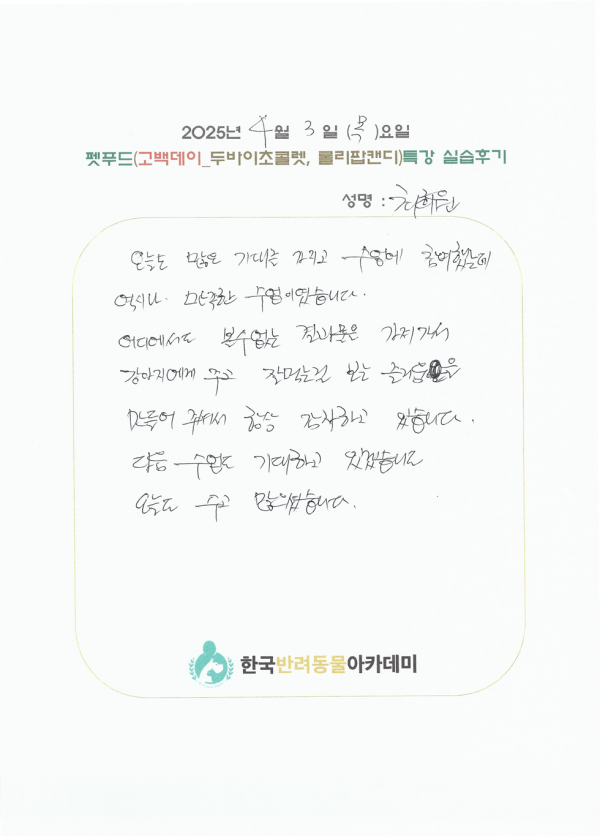 2025년 4월 3일 (목)요일
펫푸드(고백데이_두바이초콜렛, 롤리팝캔디)특강 실습후기
성명 : 최희원
오늘도 많은 기대를 가지고 수업에 참여했는데
역시나 만족한 수업이였습니다.
어디에서도 볼수없는 결과물은 가져가서
강아지에게 주고 잘먹는걸 보는 즐거움을
만들어 주셔서 항상 감사하고 있습니다.
다음 수업도 기대하고 있겠습니다
오늘도 수고 많으셨습니다.
한국반려동물아카데미